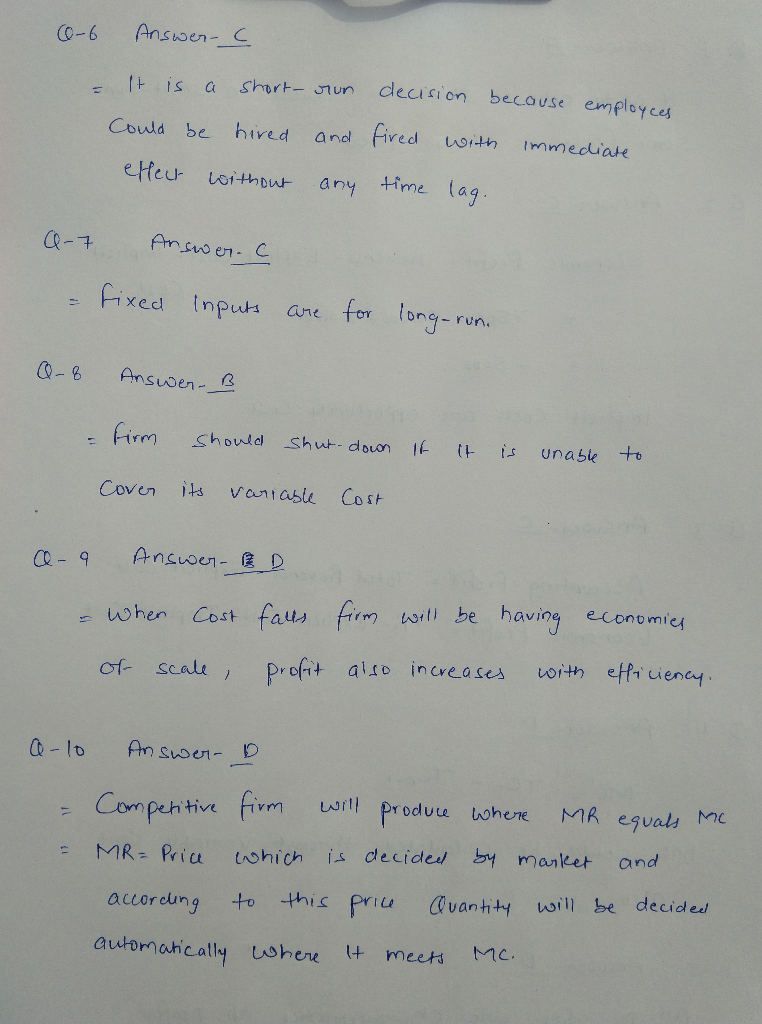 Q-6 Answer- C
= It is a short-run decision because employees
Could be hired and fired with immediate
effect without any time lag.
Q-7 Answer- C
= fixed Inputs are for long-run.
Q-8 Answer- B
= firm should shut-down if it is unable to
Cover its variable Cost
Q-9 Answer- D
= When Cost falls firm will be having economies
of scale, profit also increases with efficiency.
Q-10 Answer- D
= Competitive firm will produce where MR equals MC
= MR= Price which is decided by market and
according to this price Quantity will be decided
automatically where It meets MC.